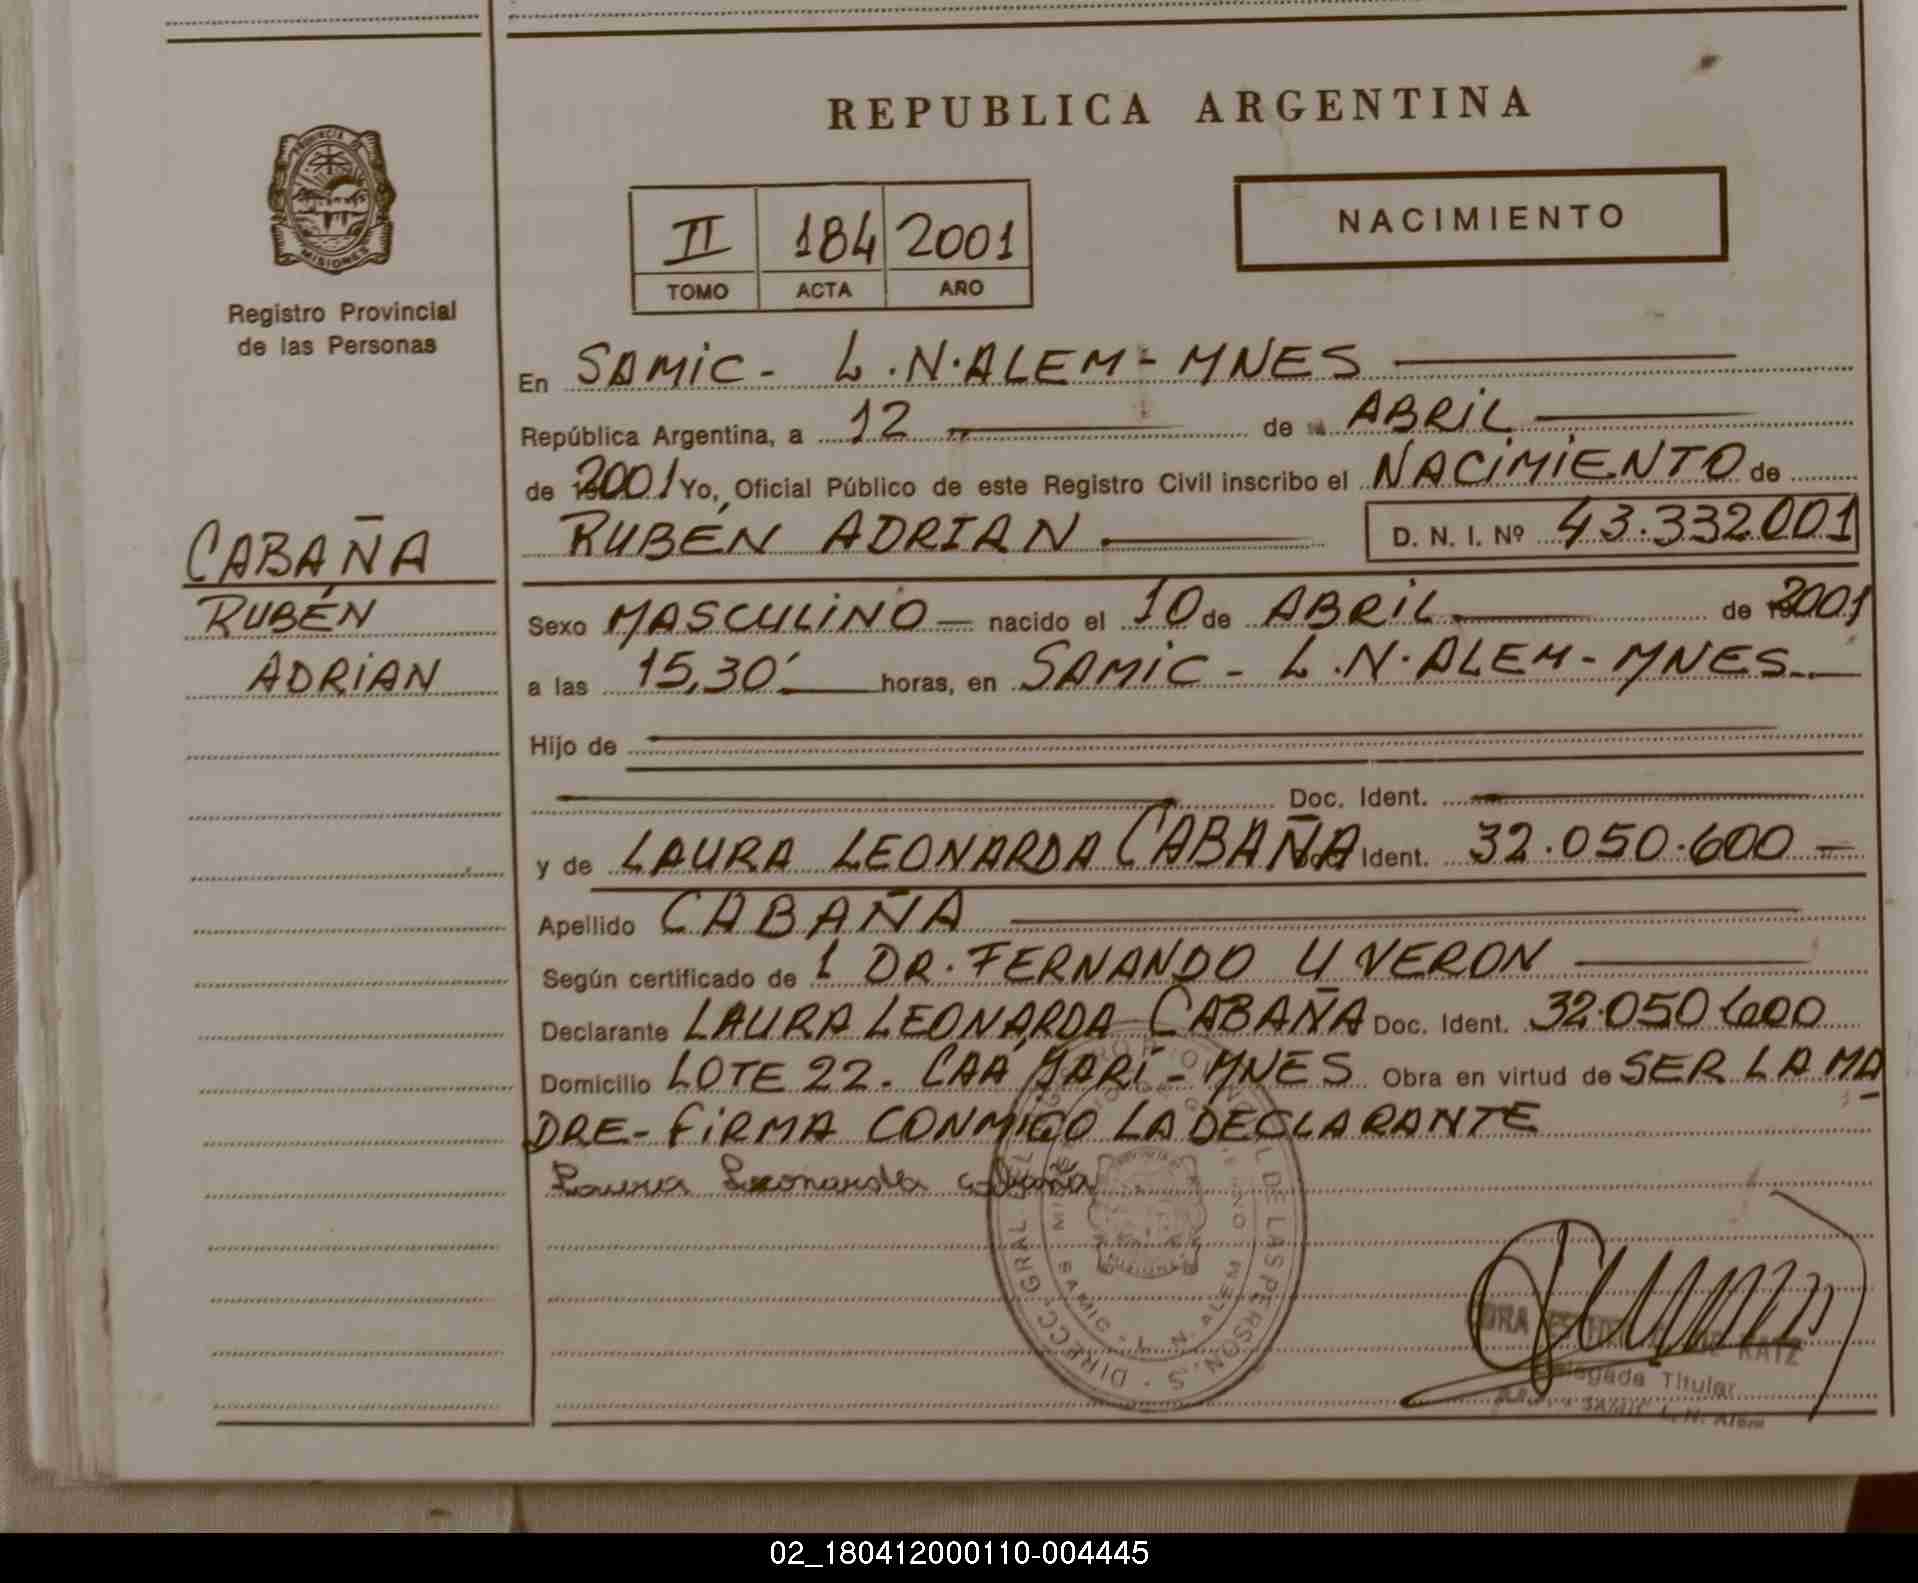 REPUBLICA ARGENTINA
PROVINCIA DE
MISIONES
Registro Provincial
de las Personas
II 184 2001
TOMO ACTA AÑO
NACIMIENTO
En SAMIC - L.N. ALEM - MNES
República Argentina, a 12 de ABRIL
de 2001 Yo, Oficial Público de este Registro Civil inscribo el NACIMIENTO de
RUBÉN ADRIAN D. N. I. Nº 43.332.001
CABAÑA
RUBÉN
ADRIAN
Sexo MASCULINO nacido el 10 de ABRIL de 2001
a las 15,30' horas, en SAMIC - L.N. ALEM - MNES
Hijo de
Doc. Ident.
y de LAURA LEONARDA CABAÑA Doc. Ident. 32.050.600
Apellido CABAÑA
Según certificado de 1 DR. FERNANDO U VERON
Declarante LAURA LEONARDA CABAÑA Doc. Ident. 32.050.600
Domicilio LOTE 22 - CAÁ YARÍ - MNES Obra en virtud de SER LA MA
DRE - FIRMA CONMIGO LA DECLARANTE
Laura Leonarda Cabaña
SAMIC - L. N. ALEM
KATZ
Delegada Titular
SAMIC L. N. Alem
02_180412000110-004445